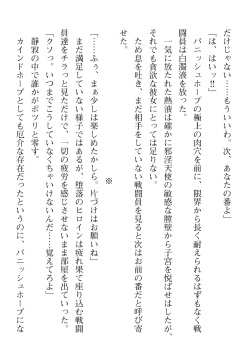 だけじゃない……もういいわ、次、あなたの番よ」
「は、はいッ‼」
　バニッシュホープの極上の肉穴を前に、限界から長く耐えられるはずもなく戦
闘員は白濁液を放つ。
　一気に放たれた熱液は確かに邪淫天使の敏感な膣壁から子宮を悦ばせはしたが、
それでも貪欲な彼女にとっては足りない。
　ため息を吐き、まだ相手をしていない戦闘員を見ると次はお前の番だと呼び寄
せた。
※
「……ふぅ、まぁ少しは楽しめたかしら。片づけはお願いね」
　まだ満足していない様子ではあるが、堕落のヒロインは疲れ果て座り込む戦闘
員達をチラっと見ただけで、一切の疲労を感じさせないまま部屋を出ていった。
「クソっ。いつまでこうしていなくちゃいけないんだ……覚えてろよ」
　静寂の中で誰かがポツリと零す。
　カインドホープとしても厄介な存在だったというのに、バニッシュホープにな